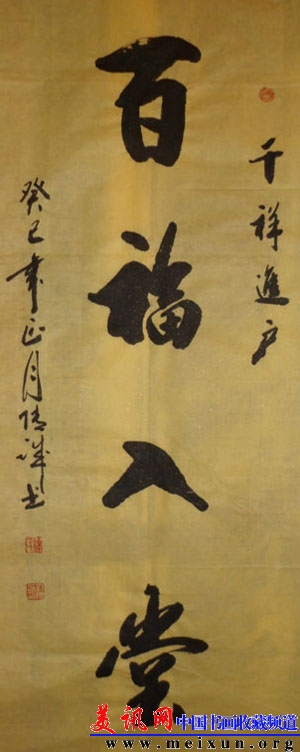 千祥進户
百福入堂
癸巳年正月情诚书
美讯网
中国书画收藏频道
www.meixun.org